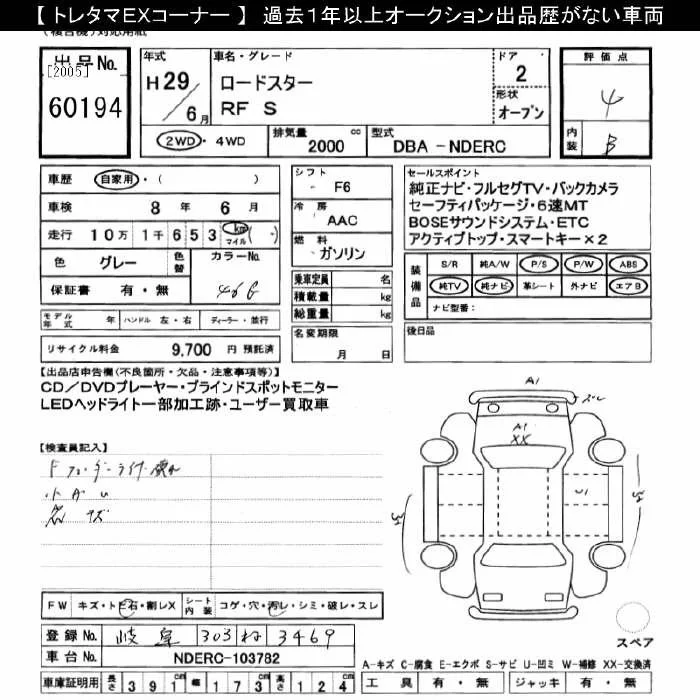 【 トレタマEXコーナー 】 過去1年以上オークション出品歴がない車両
出品No.
[2005]
60194
年式
H29/6月
車名・グレード
ロードスター
RF S
ドア
2
形状
オープン
評価点
4
内装
B
2WD・4WD
排気量 2000 cc
型式 DBA - NDERC
車歴 自家用・( )
車検 8年 6月
走行 10万 1千 6 5 3 km マイル
色 グレー
色替
カラーNo. 46G
保証書 有・無
モデル年式 年 ハンドル 左・右 ディーラー・並行
リサイクル料金 9,700 円 預託済
シフト F6
冷房 AAC
燃料 ガソリン
乗車定員 名
積載量 kg
総重量 kg
名変期限
月 日
セールスポイント
純正ナビ・フルセグTV・バックカメラ
セーフティパッケージ・6速MT
BOSEサウンドシステム・ETC
アクティブトップ・スマートキー×2
装備品
S/R 純A/W P/S P/W ABS
純TV 純ナビ 革シート 外ナビ エアB
ナビ型番：
後日品
【出品店申告欄(不良箇所・欠品・注意事項等)】
CD/DVDプレーヤー・ブラインドスポットモニター
LEDヘッドライト一部加工跡・ユーザー買取車
【検査員記入】
小ガU
A1
A1
XX
U1
FW キズ・トビ石・割レX
シート内装 コゲ・穴・汚レ・シミ・破レ・スレ
登録No. 岐阜 303 ね 3469
車台No. NDERC-103782
車庫証明用 長さ 391cm 幅 173cm 高さ 124cm
スペア
A-キズ C-腐食 E-エクボ S-サビ U-凹ミ W-補修 XX-交換済
工具 有・無 ジャッキ 有・無